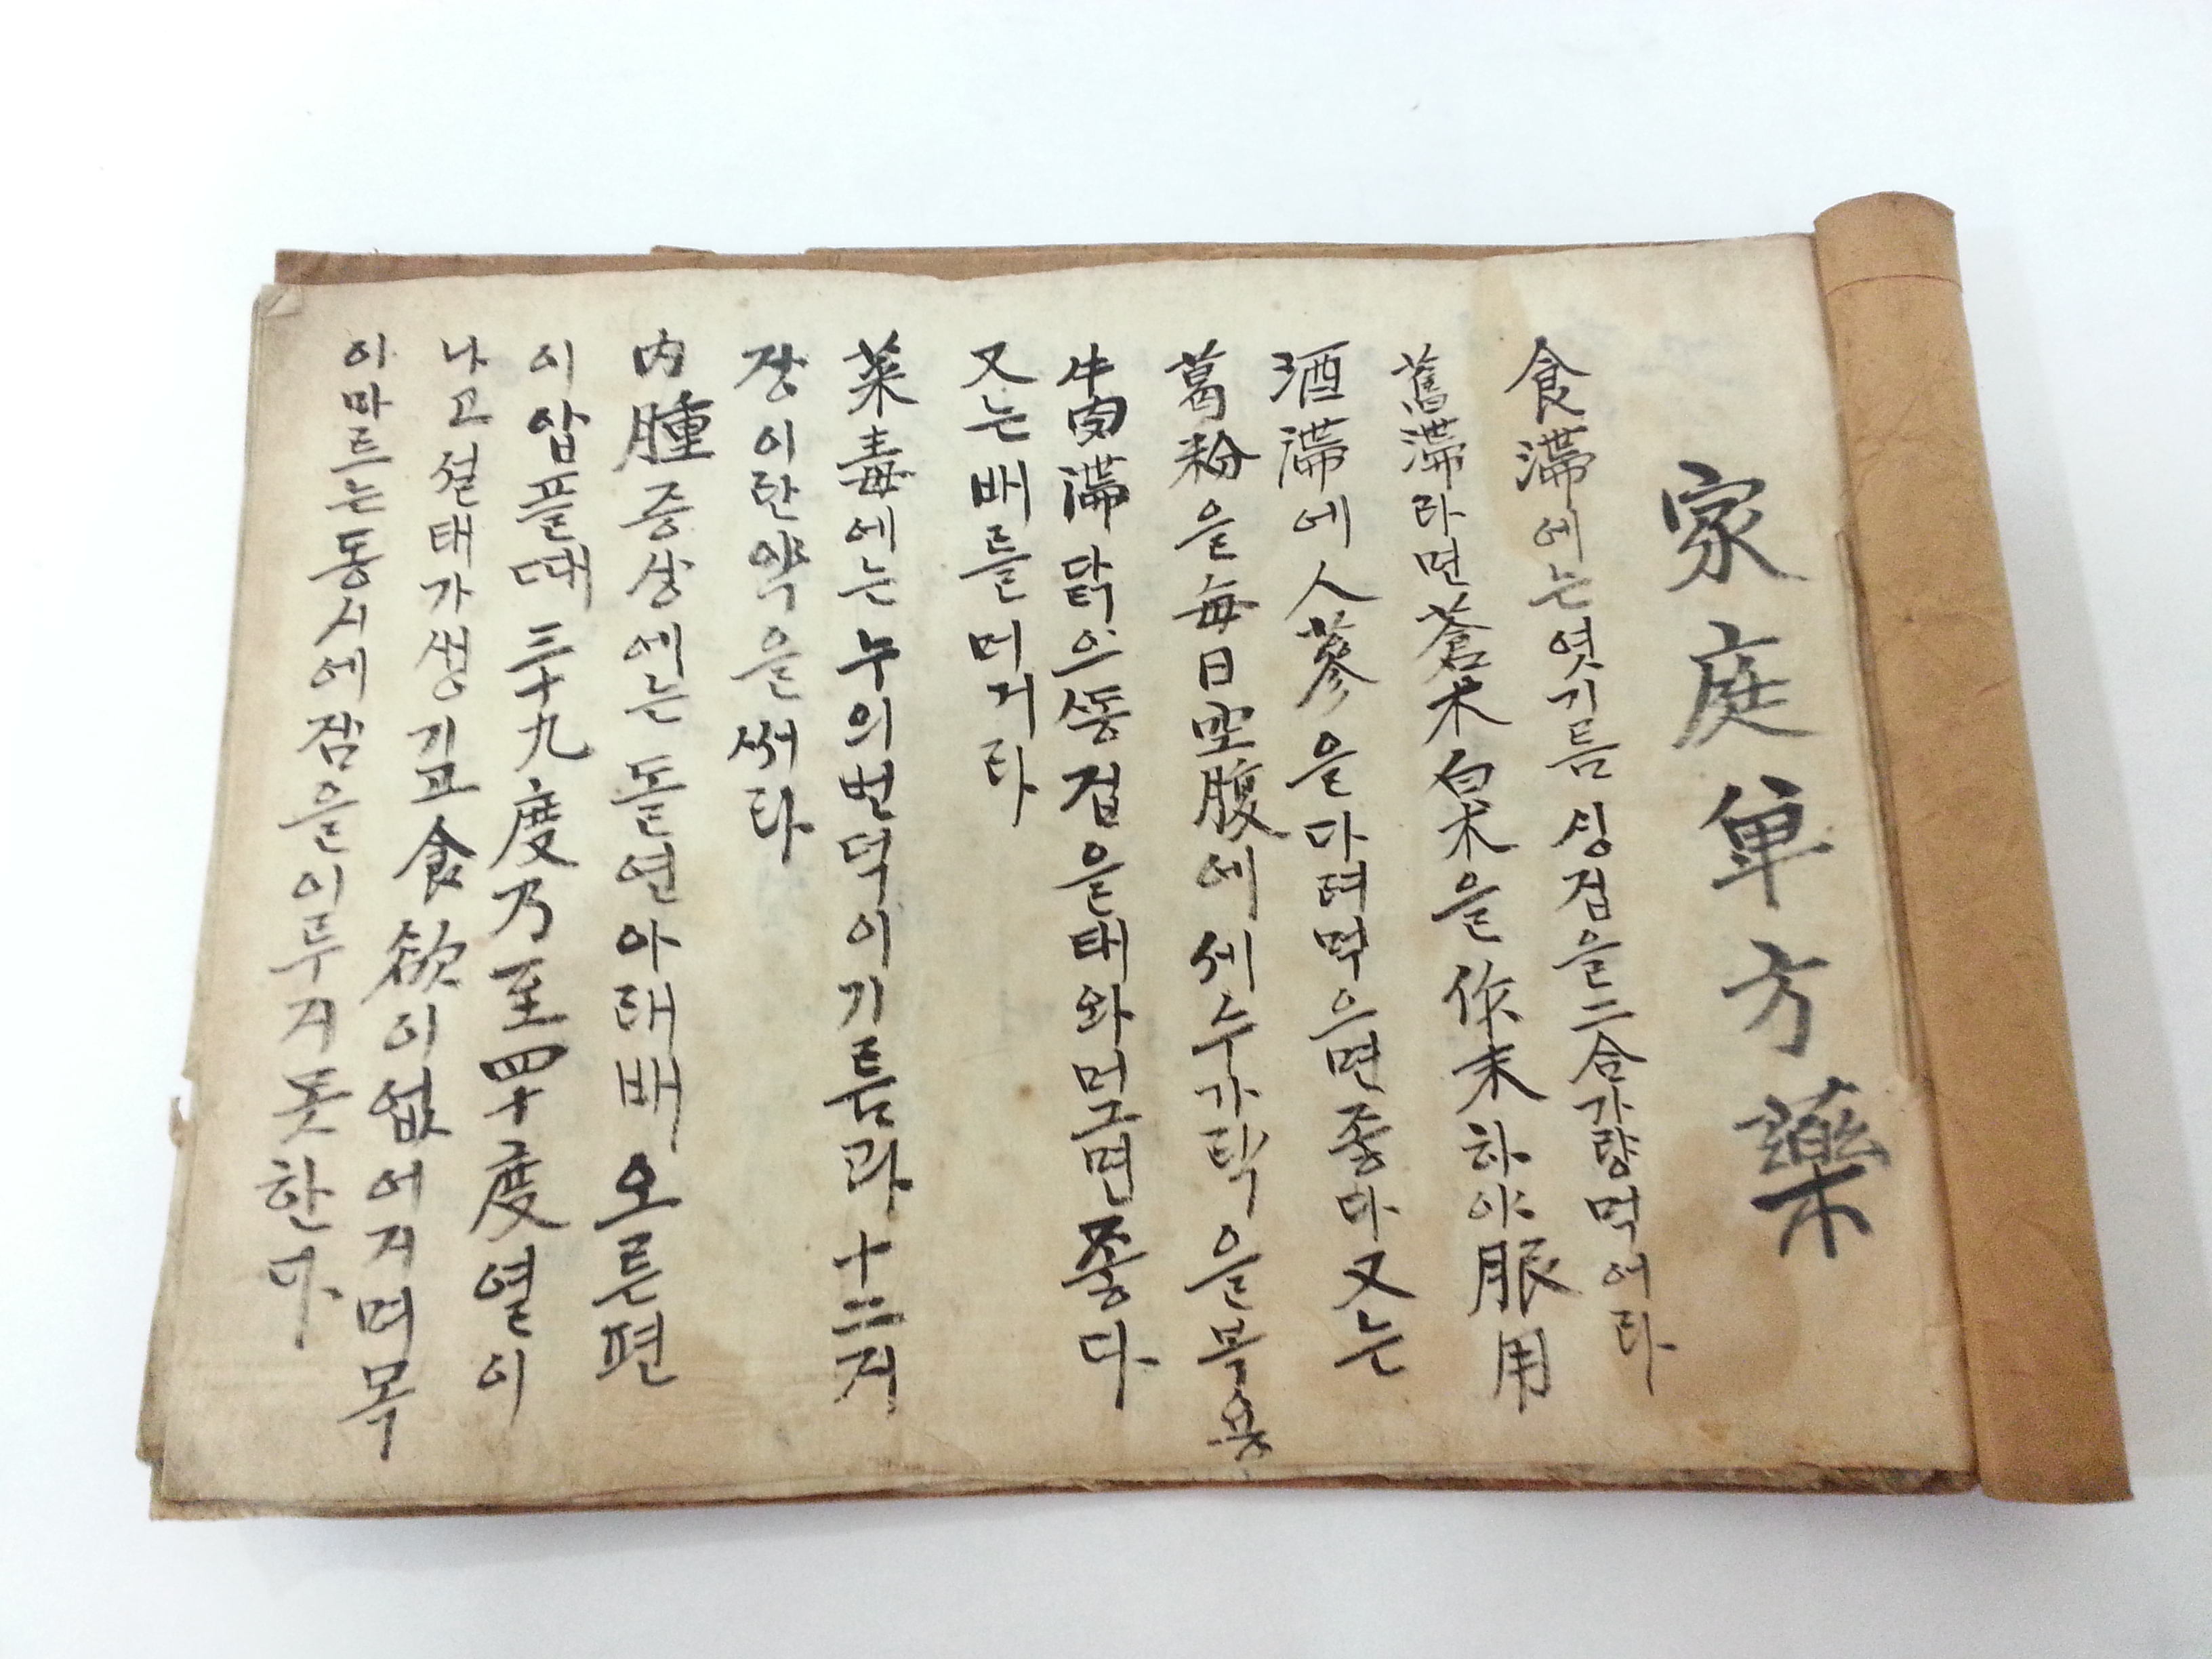 家庭単方藥
食滯에는엿기름싱겁을二合가량먹어라
舊滯라면蒼朮白朮을作末하야服用
酒滯에人蔘을다려먹으면좋다又는
葛粉을每日空腹에세수가락을복용
牛肉滯닭으똥겁을태와먹으면좋다
又는배를머거라
菜毒에는누의번덕이기름과十二지
장이란약을써라
内腫증상에는돌연아래배오른편
이압플때三十九度乃至四十度열이
나고설태가생기고食欲이없어지며목
이마르는동시에잠을이루지못한다